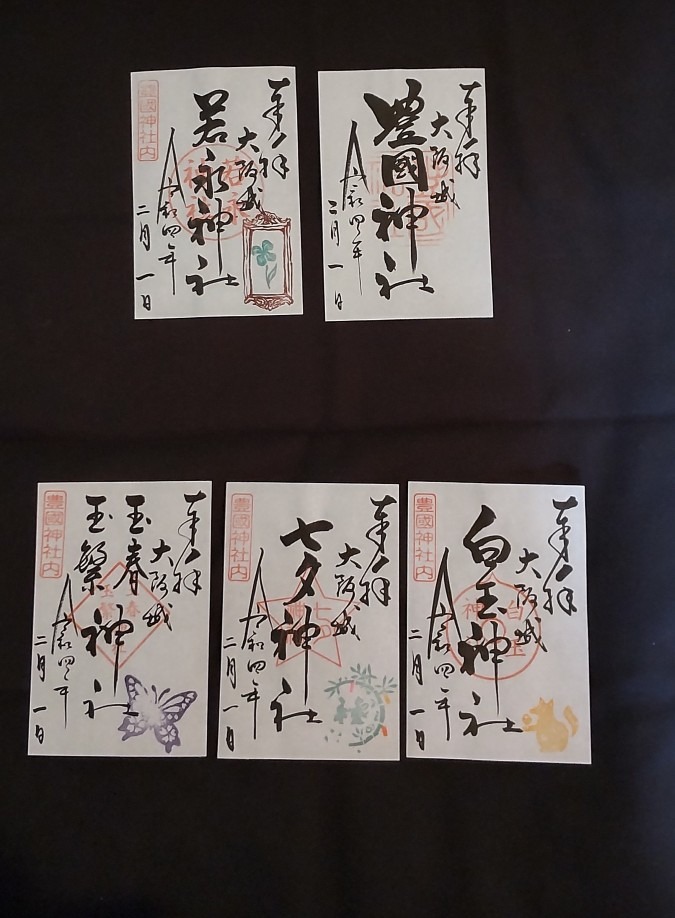 奉拝
大阪城
豊國神社
令和四年
二月一日
奉拝
大阪城
若永神社
令和四年
二月一日
豊國神社内
若永
神社
奉拝
大阪城
白玉神社
令和四年
二月一日
豊國神社内
白玉
神
奉拝
大阪城
七夕神社
令和四年
二月一日
豊國神社内
七夕
神
奉拝
大阪城
玉春
玉繁
神社
令和四年
二月一日
豊國神社内
玉春
玉繁